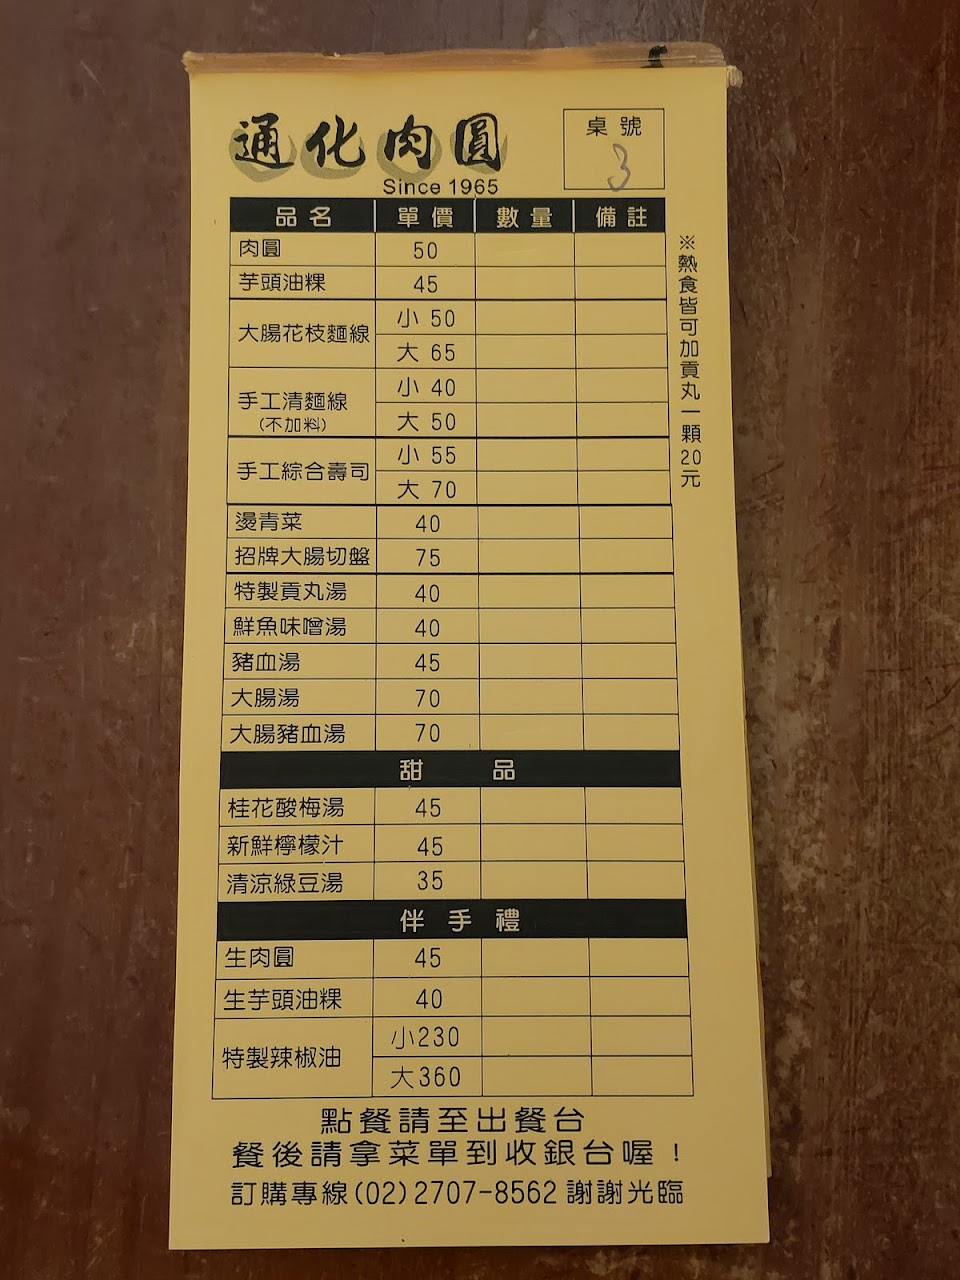 通化肉圓
Since 1965
桌號
3
品名 單價 數量 備註
肉圓 50
芋頭油粿 45
大腸花枝麵線 小 50
大 65
手工清麵線 小 40
(不加料) 大 50
手工綜合壽司 小 55
大 70
燙青菜 40
招牌大腸切盤 75
特製貢丸湯 40
鮮魚味噌湯 40
豬血湯 45
大腸湯 70
大腸豬血湯 70
※熱食皆可加貢丸一顆20元
甜品
桂花酸梅湯 45
新鮮檸檬汁 45
清涼綠豆湯 35
伴手禮
生肉圓 45
生芋頭油粿 40
特製辣椒油 小230
大360
點餐請至出餐台
餐後請拿菜單到收銀台喔！
訂購專線(02)2707-8562 謝謝光臨